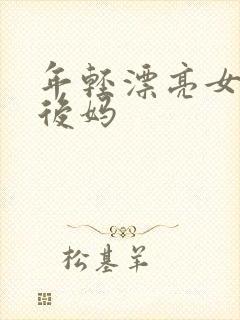 年轻漂亮女
後妈
松基羊